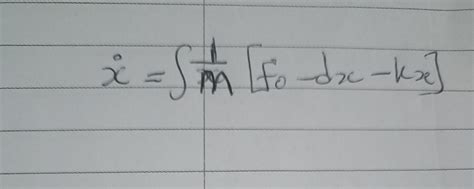 ẋ = ∫ 1/m [f₀ - dx - kx]